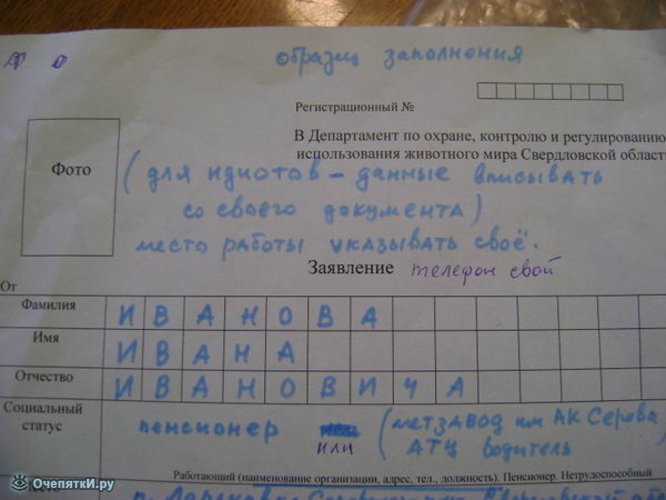 образец заполнения
Регистрационный №
В Департамент по охране, контролю и регулированию
использования животного мира Свердловской област
Фото
(для идиотов – данные вписывать
со своего документа)
место работы указывать своё.
Заявление телефон свой
От
Фамилия ИВАНОВА
Имя ИВАНА
Отчество ИВАНОВИЧА
Социальный статус пенсионер или (метзавод им АК Серова
АТЦ водитель
Работающий (наименование организации, адрес, тел., должность). Пенсионер. Нетрудоспособный
ОчепяткИ.ру